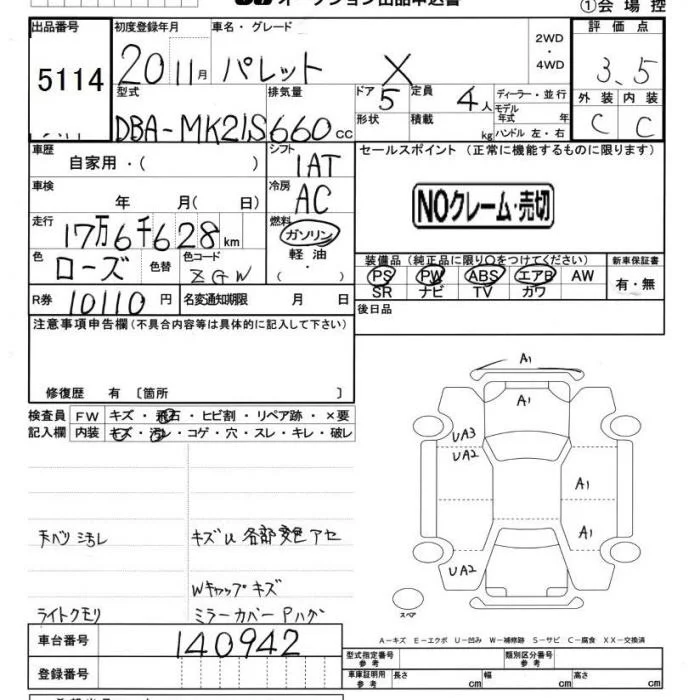 オークション出品申込書
①会 場 控
出品番号 5114
初度登録年月 20 11月
車名・グレード パレット X
2WD ・ 4WD
評 価 点 3.5
外 装 内 装
C C
型式 DBA-MK21S
排気量 660 cc
ドア 5
定員 4人
形状 積載 kg
ディーラー・並行
モデル年式 年
ハンドル 左・右
車歴 自家用・( )
シフト 1AT
セールスポイント (正常に機能するものに限ります)
NOクレーム・売切
車検 年 月( 日)
冷房 AC
走行 17万6千628km
燃料 ガソリン
軽 油
・( )
色 ローズ 色替
色コード ZGW
装備品(純正品に限り○をつけてください)
新車保証書
PS PW ABS エアB AW
SR ナビ TV カワ
有・無
R券 10110 円
名変通知期限 月 日
後日品
注意事項申告欄(不具合内容等は具体的に記入して下さい)
修復歴 有 〔箇所 〕
検査員記入欄
FW キズ・飛石・ヒビ割・リペア跡・×要
内装 キズ・汚レ・コゲ・穴・スレ・キレ・破レ
A1
A1
UA3
UA2
A1
A1
UA2
スペア
天ベリ 汚レ
キズU 各部変色アセ
Wキャップキズ
ライトクモリ
ミラーカバーPハゲ
A-キズ E-エクボ U-凹み W-補修跡 S-サビ C-腐食 XX-交換済
車台番号 140942
登録番号
型式指定番号 参 考
類別区分番号 参 考
車庫証明用 参 考 長さ cm 幅 cm 高さ cm